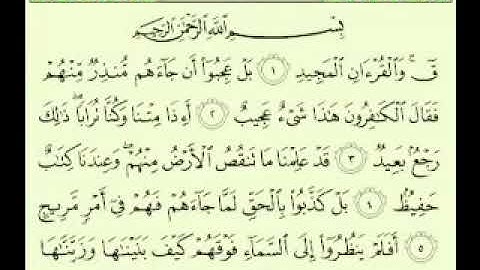 بِسْمِ ٱللَّهِ ٱلرَّحْمَٰنِ ٱلرَّحِيمِ
قٓ ۚ وَٱلْقُرْءَانِ ٱلْمَجِيدِ ١ بَلْ عَجِبُوٓا۟ أَن جَآءَهُم مُّنذِرٌ مِّنْهُمْ
فَقَالَ ٱلْكَٰفِرُونَ هَٰذَا شَىْءٌ عَجِيبٌ ٢ أَءِذَا مِتْنَا وَكُنَّا تُرَابًا ۖ ذَٰلِكَ
رَجْعٌۢ بَعِيدٌ ٣ قَدْ عَلِمْنَا مَا تَنقُصُ ٱلْأَرْضُ مِنْهُمْ ۖ وَعِندَنَا كِتَٰبٌ
حَفِيظٌۢ ٤ بَلْ كَذَّبُوا۟ بِٱلْحَقِّ لَمَّا جَآءَهُمْ فَهُمْ فِىٓ أَمْرٍ مَّرِيجٍ
٥ أَفَلَمْ يَنظُرُوٓا۟ إِلَى ٱلسَّمَآءِ فَوْقَهُمْ كَيْفَ بَنَيْنَٰهَا وَزَيَّنَّٰهَا